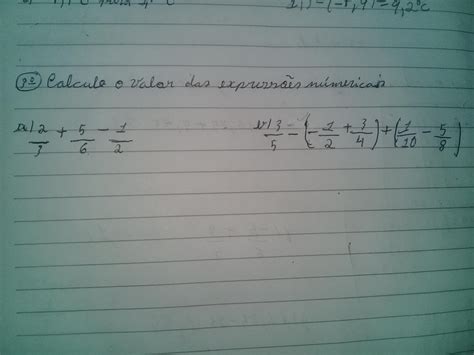 2º) Calcule o valor das expressões númericais
a) 2/3 + 5/6 - 1/2
b) 3/5 - (-1/2 + 3/4) + (1/10 - 5/8)